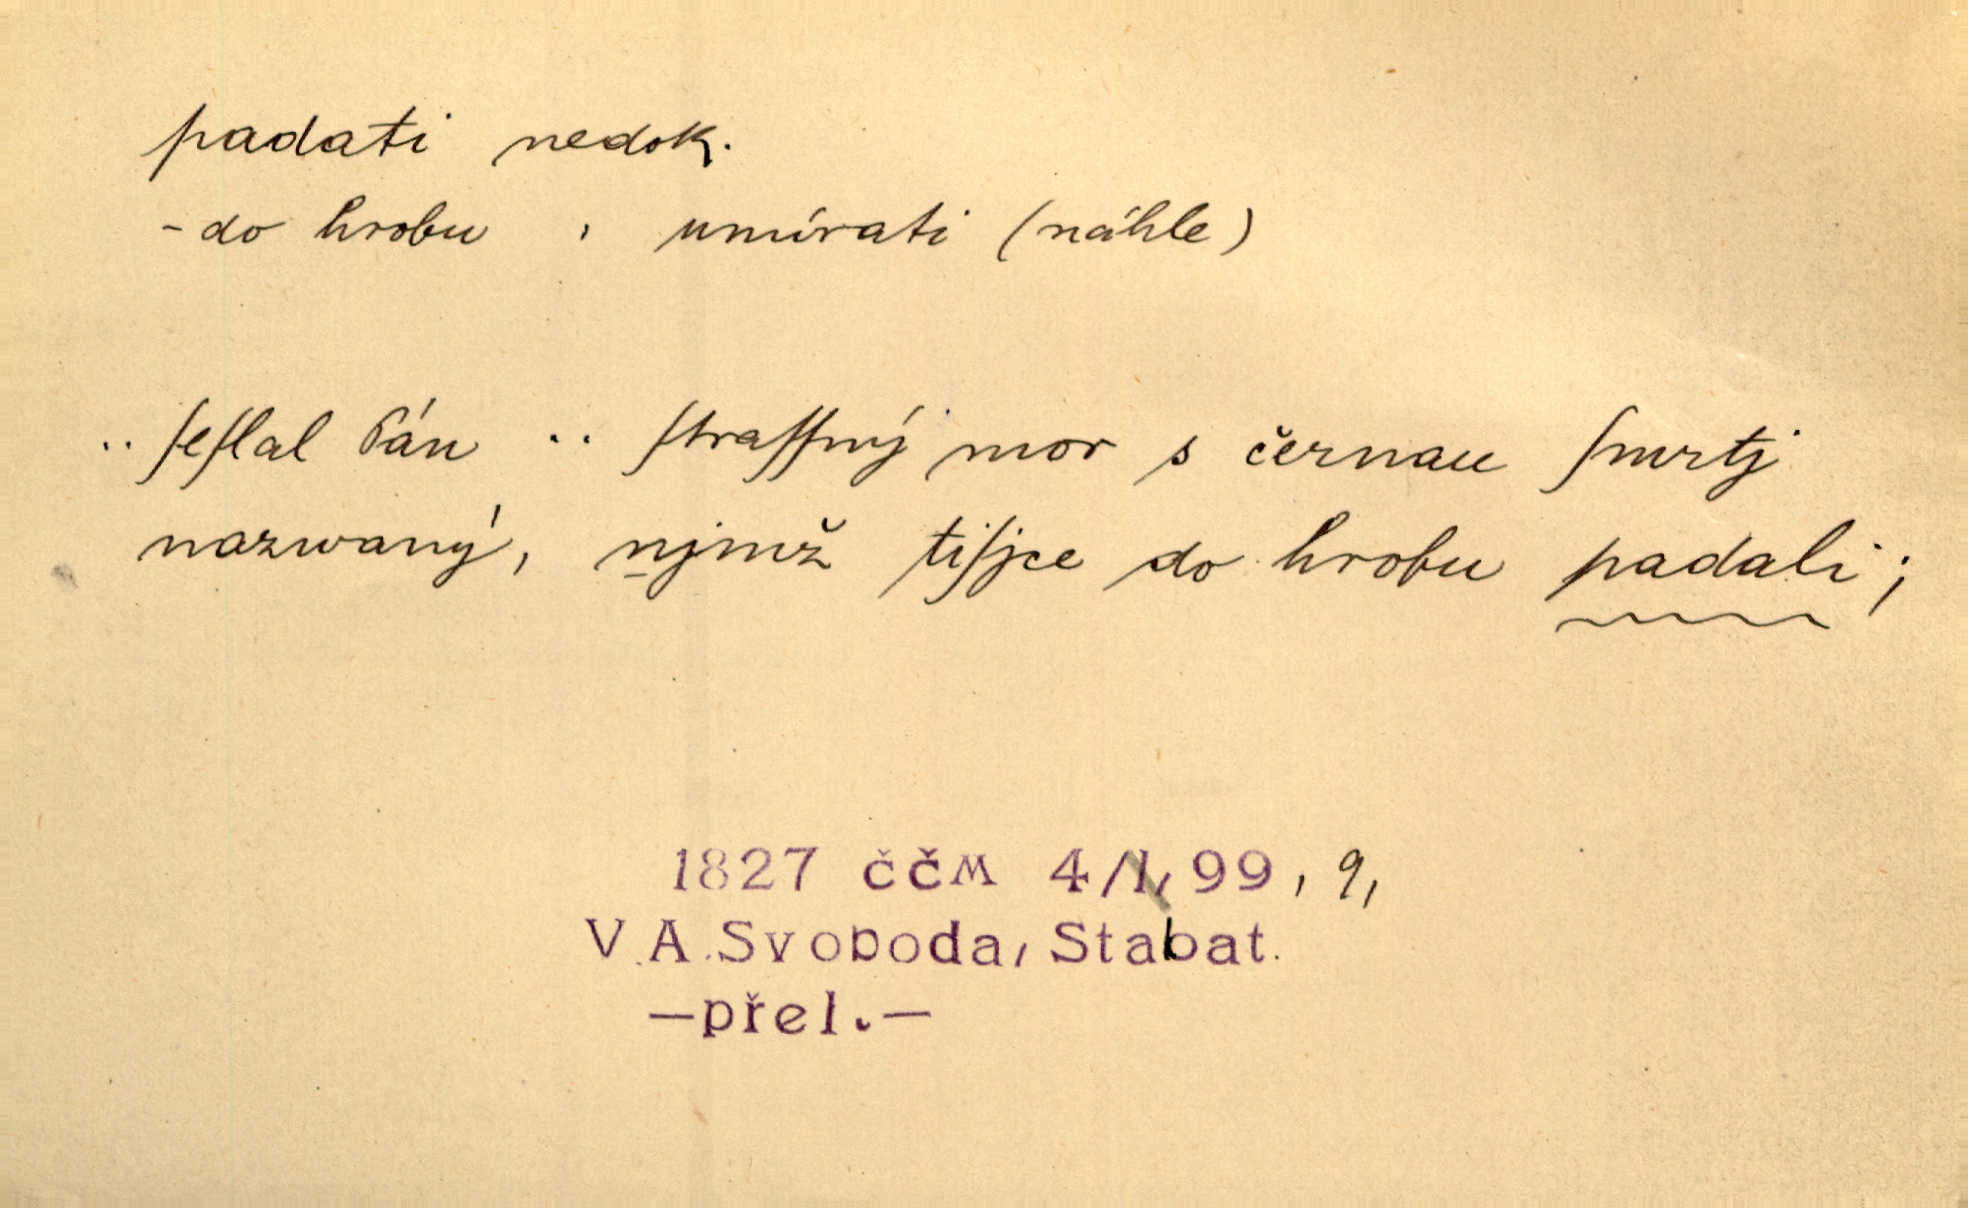 padati nedok.
- do hrobu , umírati (náhle)
.. ſeſlal Pán .. ſtraſſný mor s černau ſmrtj
nazwaný, njmž tiſjce do hrobu padali;
1827 ččM 4/1, 99, 9,
V.A.Svoboda, Stabat.
—přel.—